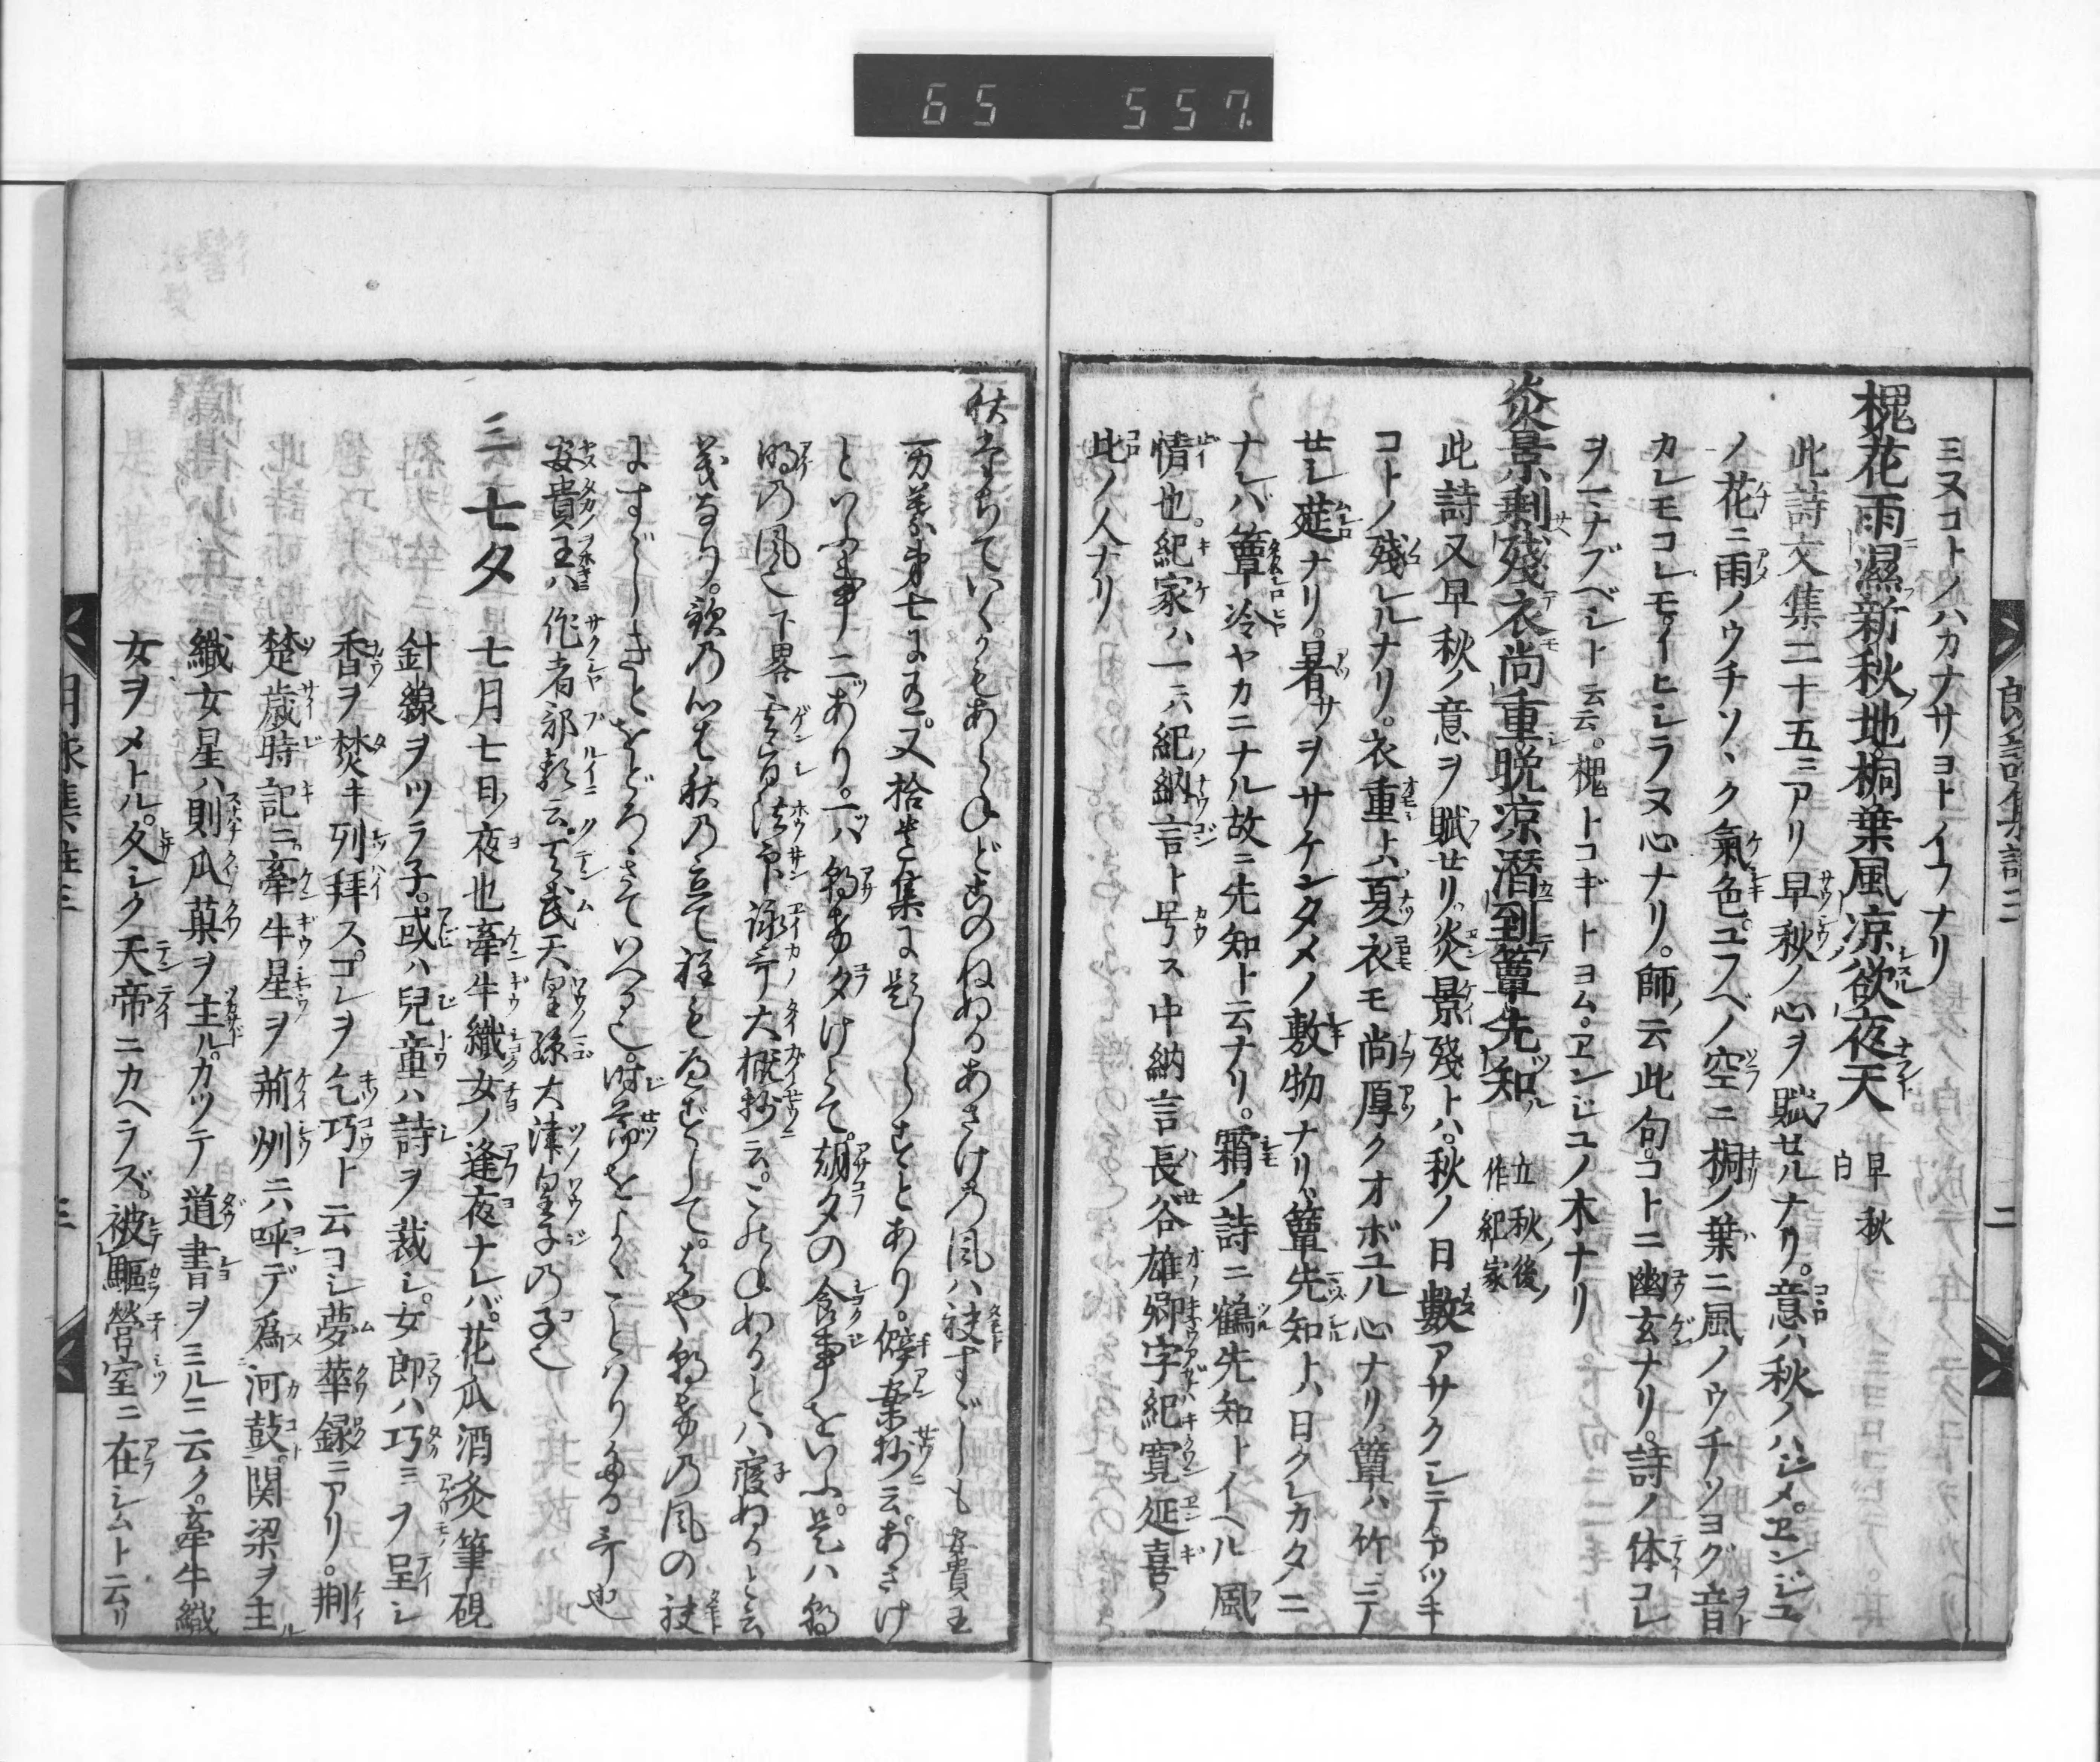 65 557.
ミヌコトノハカナサヨトイフナリ
槐花雨濕新秋地。桐葉風凉欲夜天 早秋 白
此詩文集二十五ニアリ早秋ノ心ヲ賦セルナリ。意ハ秋ノハジメ。ヱンジユ
ノ花ニ雨ノウチソヽク氣色。ユフベノ空ニ桐ノ葉ニ風ノウチソヨグ音
カレモコレモイヒシラヌ心ナリ。師ノ云此句。コトニ幽玄ナリ。詩ノ体コレ
ヲマナブベシト云云。槐トコギトヨム。ヱンジユノ木ナリ
炎景剰殘衣尚重。晩凉潛到簟先知 立秋後ノ作 紀家
此詩又早秋ノ意ヲ賦セリ。炎景殘トハ。秋ノ日數アサクシテアツキ
コトノ殘レルナリ。衣重トハ夏衣モ尚厚クオボユル心ナリ。簟ハ竹ニテ
セシ莚ナリ。暑サヲサケンタメノ敷物ナリ。簟先知トハ日クレカタニ
ナレバ簟冷ヤカニナル故ニ先知ト云ナリ。霜ノ詩ニ鶴先知トイヘル風
情也。紀家ハ一六紀納言ト号ス中納言長谷雄卿字紀寛延喜ノ
此ノ人ナリ
秋たちていくかもあらねどこのねぬるあさけの風は袂すゞしも 安貴王
万葉第七に有。又拾遺集に題しらずとあり。僻案抄云。あさけ
といふ事二あり。一ハ朝夕けとて。朝夕の食事をいふ。是ハ朝
明の風也下畧 玄旨法印詠哥大概抄云。このねぬるとハ寝ぬると云
義なり。歌の心は秋の立て程もなきして。はや朝夕の風の袂
にすゞしきとをどろきていへる也。時節をよくことハりたる哥也
安貴王ハ 作者部類云天武天皇孫大津皇子の子也
三 七夕
七月七日ノ夜也牽牛織女ノ逢夜ナレバ。花瓜酒炙筆硯
針線ヲツラ子。或ハ兒童ハ詩ヲ裁シ。女郎ハ巧ミヲ呈シ
香ヲ焚キ列拜ス。コレヲ乞巧ト云コレ夢華録ニアリ。荊
楚歳時記ニ牽牛星ヲ荊州ニハ呼デ為河鼓。関梁ヲ主ル
織女星ハ則瓜菓ヲ主ル。カツテ道書ヲミルニ云ク。牽牛織
女ヲメトル。久シク天帝ニカヘラズ。被驅營室ニ在シムト云リ